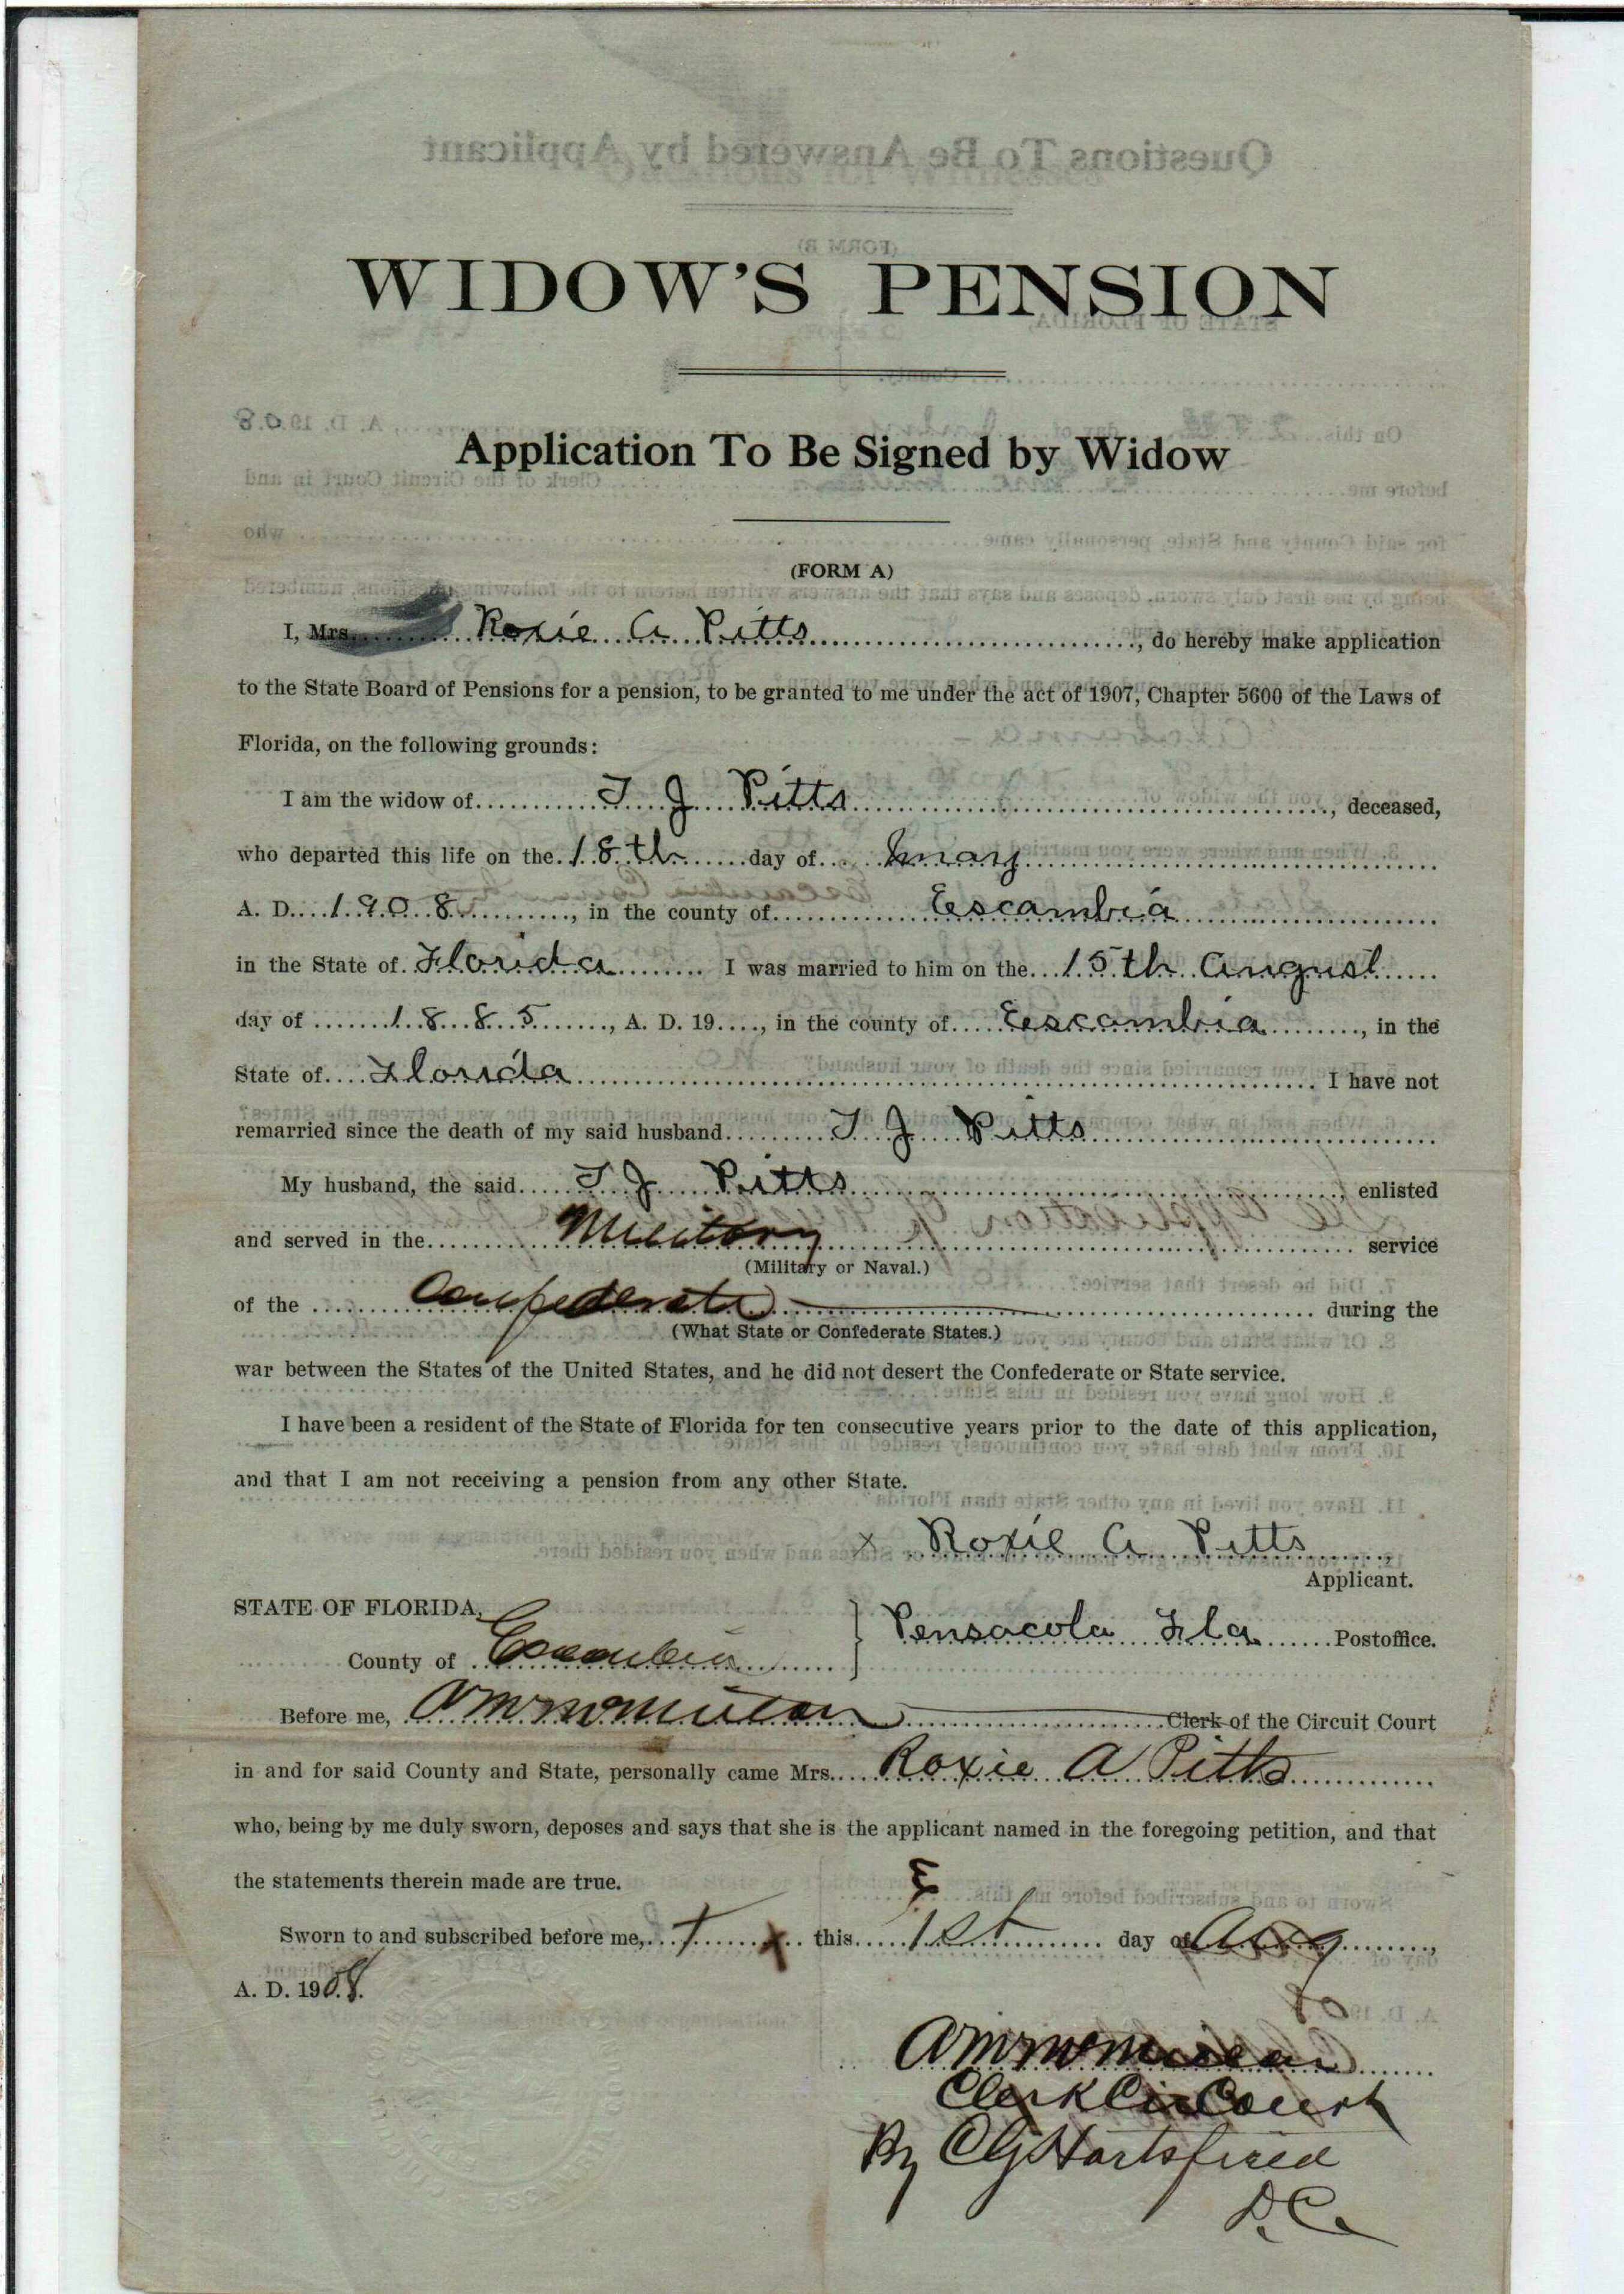 WIDOW'S PENSION
Application To Be Signed by Widow
(FORM A)
I, Mrs. Roxie A Pitts, do hereby make application
to the State Board of Pensions for a pension, to be granted to me under the act of 1907, Chapter 5600 of the Laws of
Florida, on the following grounds:
I am the widow of T J Pitts, deceased,
who departed this life on the 18th day of May
A. D. 1908, in the county of Escambia
in the State of Florida I was married to him on the 15th August
day of 1885, A. D. 19...., in the county of Escambia, in the
State of Florida I have not
remarried since the death of my said husband T J Pitts
My husband, the said T J Pitts, enlisted
and served in the Military service
(Military or Naval.)
of the Confederate during the
(What State or Confederate States.)
war between the States of the United States, and he did not desert the Confederate or State service.
I have been a resident of the State of Florida for ten consecutive years prior to the date of this application,
and that I am not receiving a pension from any other State.
x Roxie A Pitts
Applicant.
STATE OF FLORIDA,
County of Escambia
Pensacola Fla Postoffice.
Before me, Clerk of the Circuit Court
in and for said County and State, personally came Mrs. Roxie A Pitts
who, being by me duly sworn, deposes and says that she is the applicant named in the foregoing petition, and that
the statements therein made are true.
Sworn to and subscribed before me, this 1st day of Aug,
A. D. 1908.
Clerk Cir Court
By C G Hartsfield
D.C.